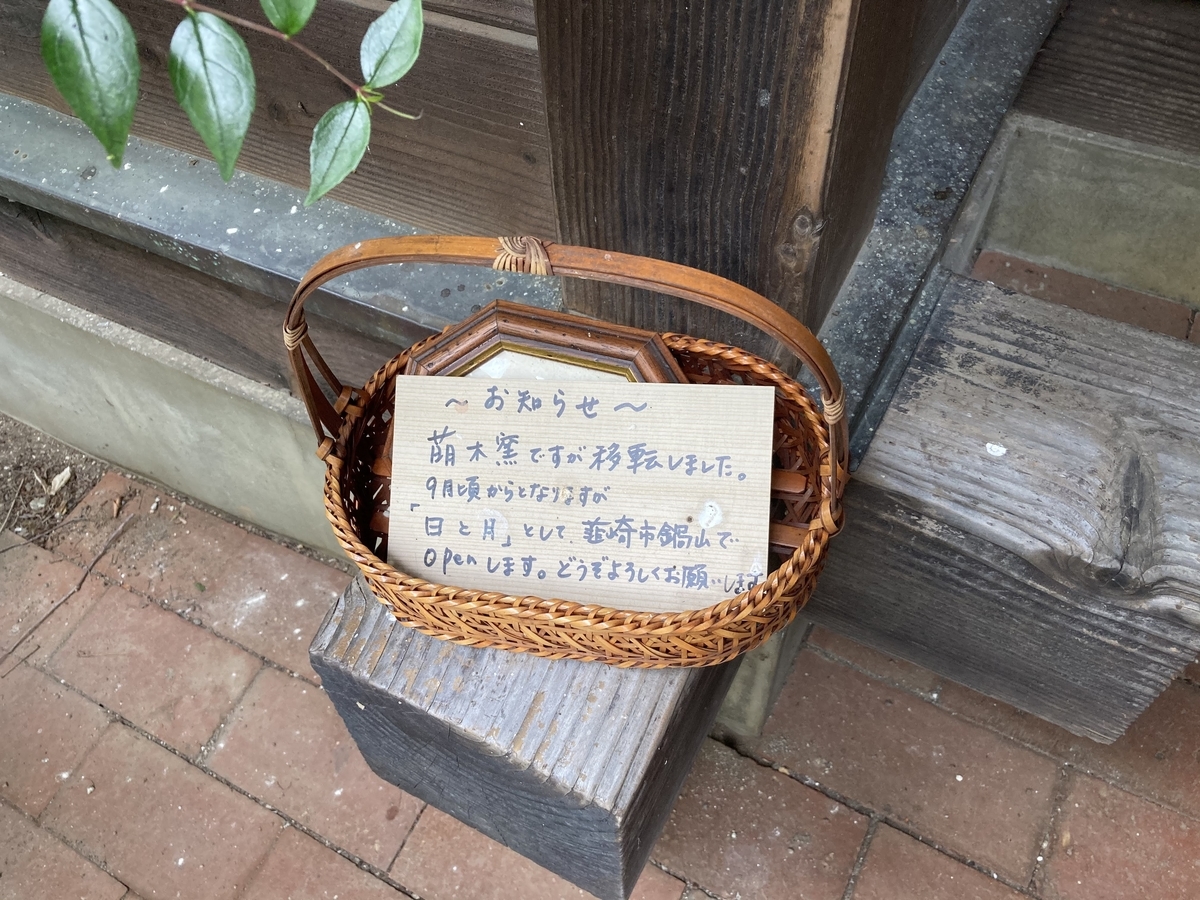 ～お知らせ～
萠木窯ですが移転しました。
9月頃からとなりますが
「日と月」として、韮崎市鍋山で
Openします。どうぞよろしくお願いします